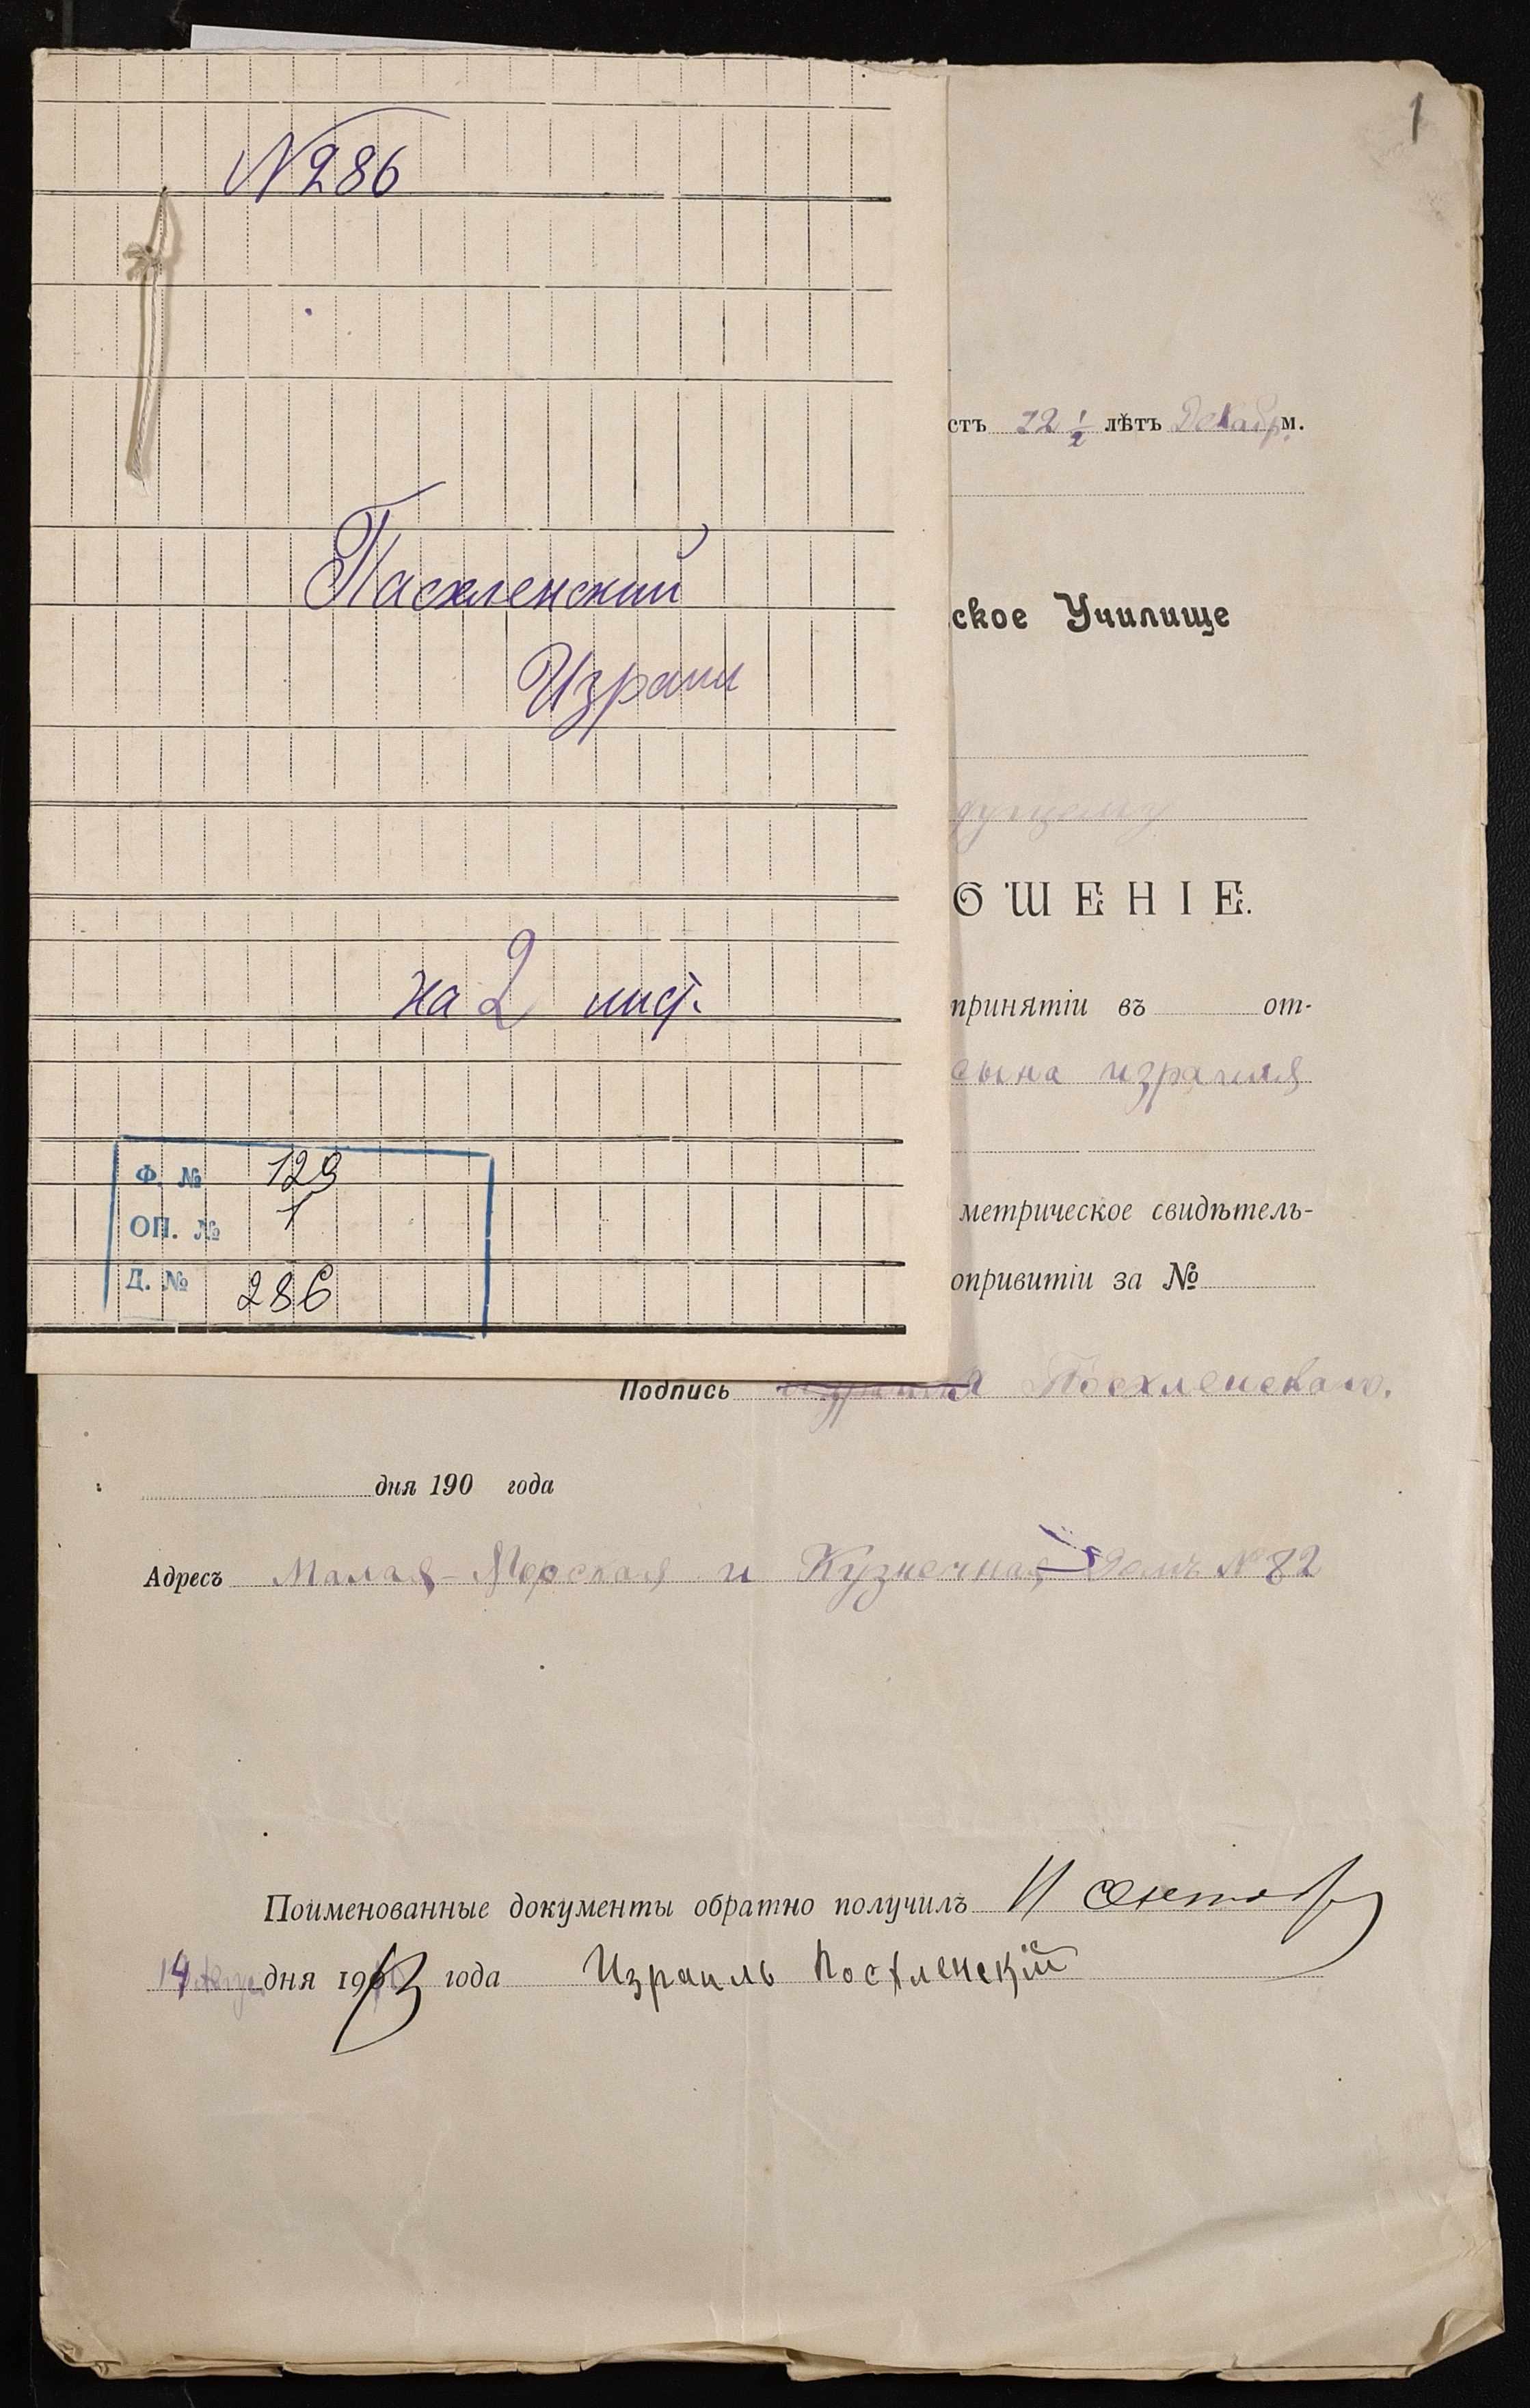 № 286
Пасхленский
Израил
на 2 лист.
Ф. № 129
ОП. № 1
Д. № 286
1
стъ 12 ½ лѣтъ Декабр м.
ское Училище
дующему
ОШЕНІЕ.
принятіи въ от-
сына израиля
метрическое свидѣтель-
опривитіи за №
Подпись израиля Пасхленскаго.
дня 190 года
Адресъ Малая-Морская и Кузнечная домъ № 82
Поименованные документы обратно получилъ
14 дня 1913 года Израиль Посхленскій